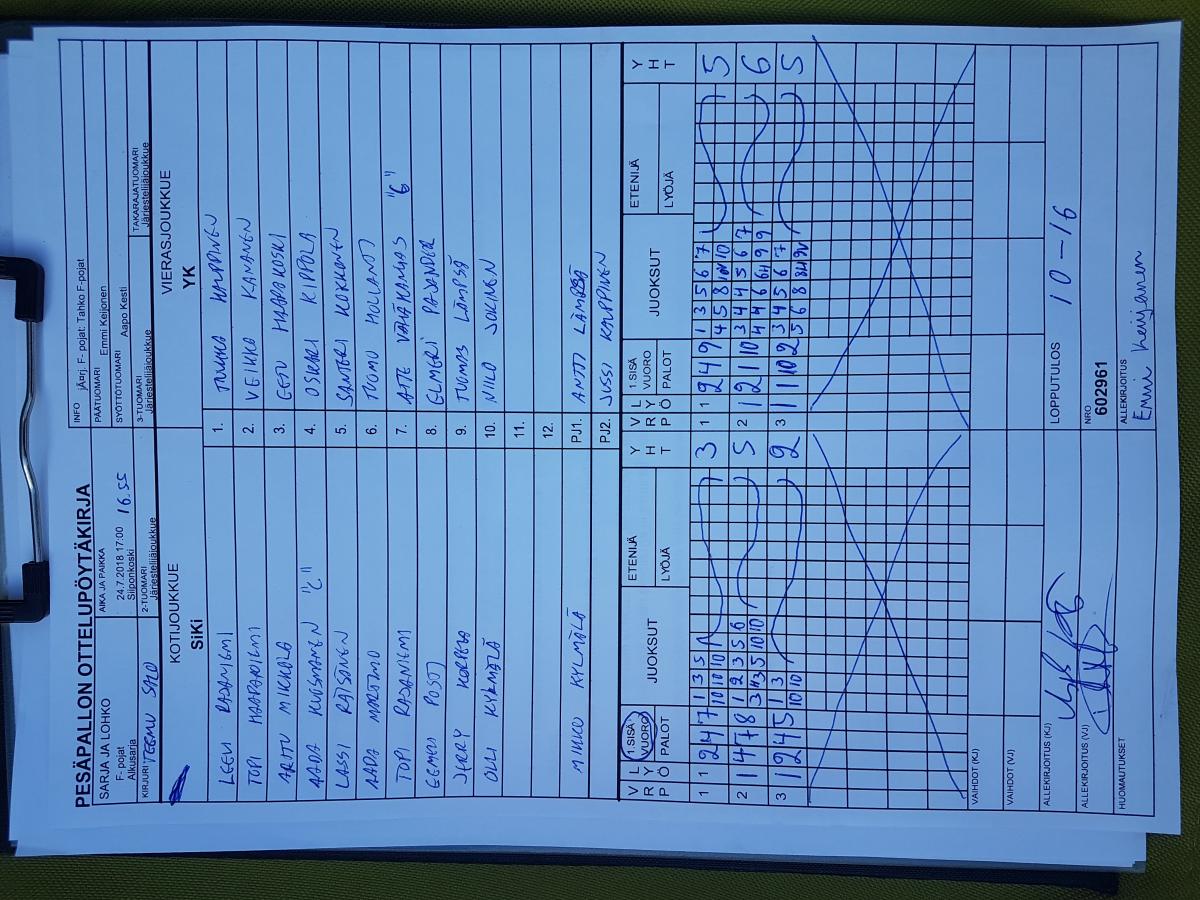 PESÄPALLON OTTELUPÖYTÄKIRJA
SARJA JA LOHKO
F- pojat
Alkusarja
AIKA JA PAIKKA
24.7.2018 17:00 16.55
Siiponkoski
INFO jÄarj. F- pojat: Tahko F-pojat
PÄÄTUOMARI Emmi Keijonen
SYÖTTÖTUOMARI Aapo Kesti
KIRJURI TEEMU SALO
2-TUOMARI
Järjestelijäjoukkue
3-TUOMARI
Järjestelijäjoukkue
TAKARAJATUOMARI
Järjestelijäjoukkue
KOTIJOUKKUE
SiKi
VIERASJOUKKUE
YK
LEEVI RAJANIEMI
1. KARPPINEN
TOPI HAAPANIEMI
2. VEIKKO KANANEN
MIKKOLA
3. EETU HAAPAKOSKI
AADA KUOSMANEN "C"
4. OSKARI KIPPOLA
LASSI RÄISÄNEN
5. SANTERI KOKKONEN
AADA MARTIMO
6. TUOMO HOLLANTI
TOPI RAJANIEMI
7. ATTE VÄHÄKANGAS "6"
EEMELI POSTI
8. ELMERI PAJANDER
JERRY KORPELA
9. TUOMAS LÄMPSÄ
OLLI KYLMÄLÄ
10. NIILO JOKINEN
11.
12.
MIKKO KYLMÄLÄ
PJ1. ANTTI LÄMPSÄ
PJ2. JUSSI KARPPINEN
V R P L Y Ö 1.SISÄ VUORO PALOT JUOKSUT ETENIJÄ LYÖJÄ Y H T
V R P L Y Ö 1.SISÄ VUORO PALOT JUOKSUT ETENIJÄ LYÖJÄ Y H T
1 1 2 4 7 1 3 5 3
10 10 10
1 1 2 4 9 1 3 5 6 7 5
4 5 8 10 10
2 1 4 7 8 1 2 3 5 6 5
3 3 5 10 10
2 1 2 1 10 3 4 4 5 6 7 6
4 4 6 9 9
3 1 2 4 5 1 3 2
10 10
3 1 1 10 2 3 4 5 6 7 5
5 6 8
VAIHDOT (KJ)
VAIHDOT (VJ)
ALLEKIRJOITUS (KJ)
LOPPUTULOS 10 - 16
ALLEKIRJOITUS (VJ)
NRO
602961
HUOMAUTUKSET
ALLEKIRJOITUS
Emmi Keijonen